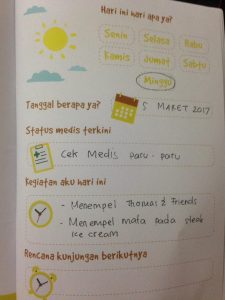 Hari ini hari apa ya?
Senin Selasa Rabu
Kamis Jumat Sabtu
Minggu
Tanggal berapa ya? 5 MARET 2017
Status medis terkini
Cek Medis paru-paru
Kegiatan aku hari ini
- Menempel Thomas & Friends
- Menempel mata pada sleek
ice cream
Rencana kunjungan berikutnya